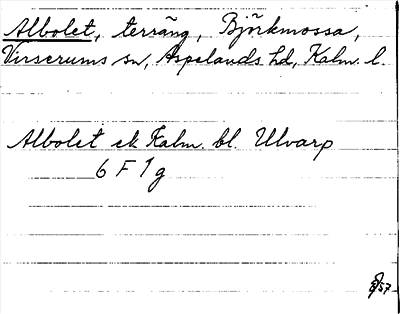 Albolet, terräng, Björkmossa,
Virserums sn, Aspelands hd, Kalm. l.
Albolet ek Kalm. bl. Ulvarp
6 F 1 g